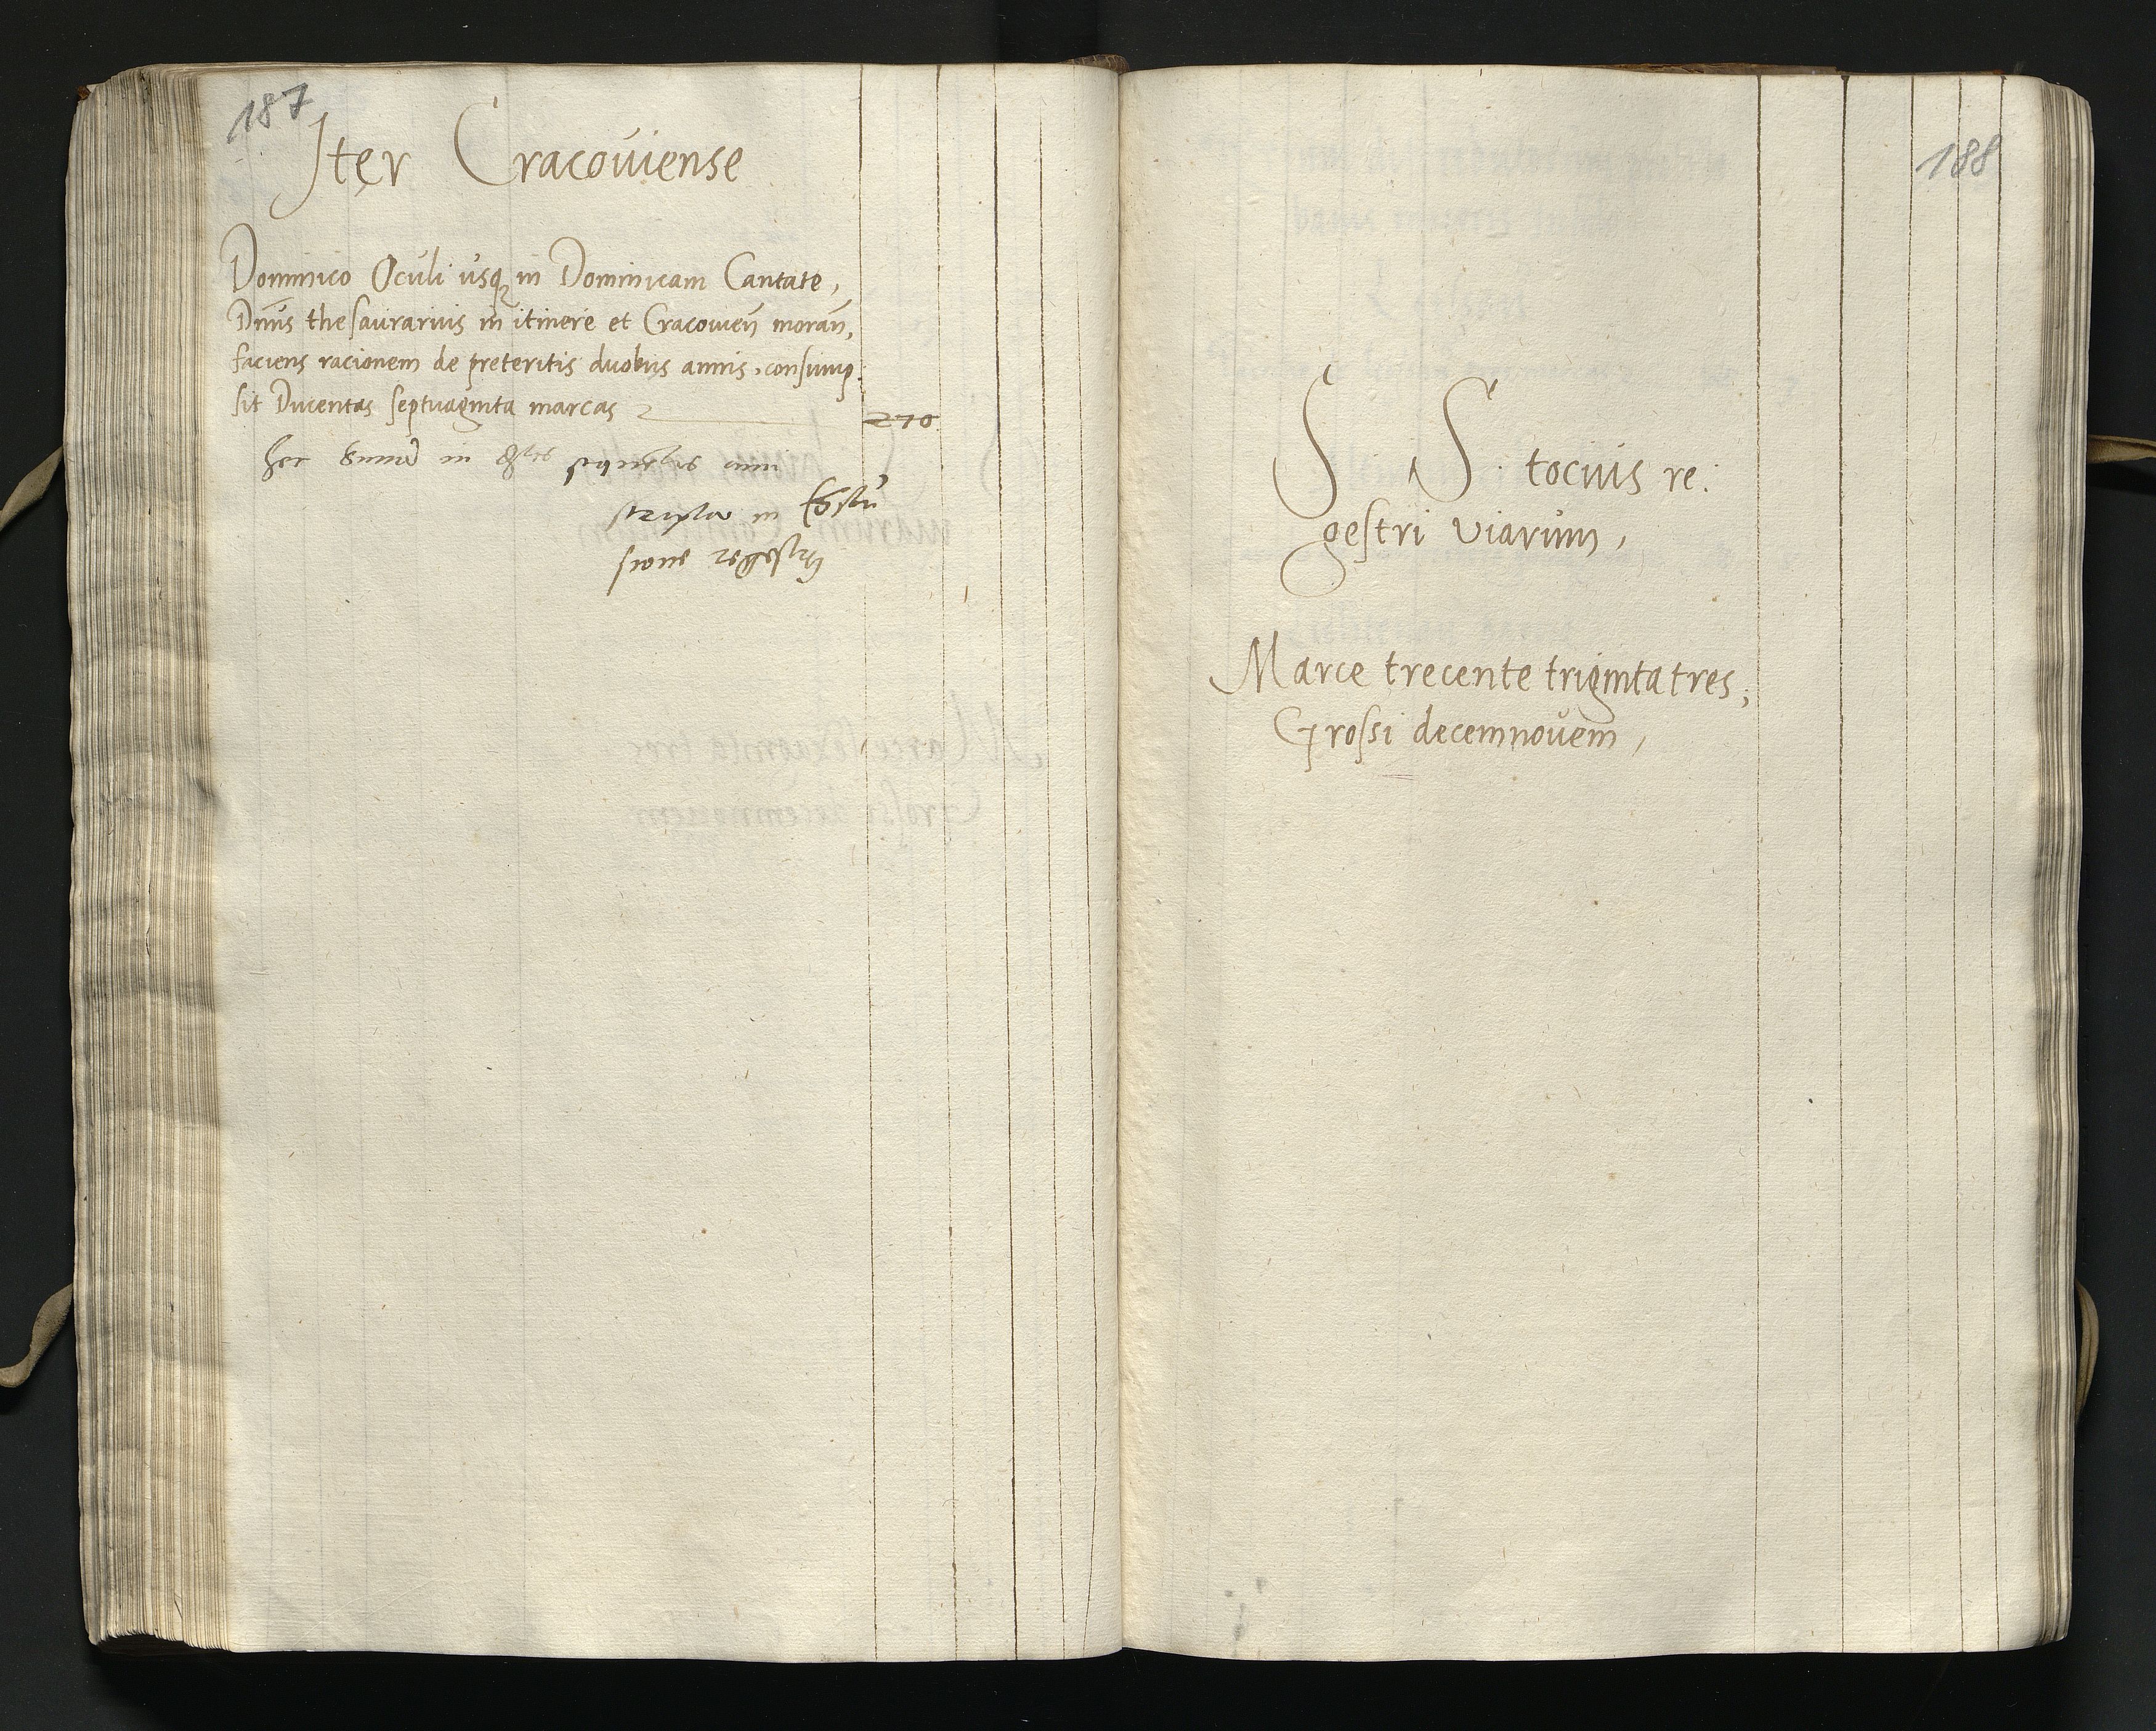 187
Iter Cracouiense
Dominico Oculi usq in Dominicam Cantate,
Dnus thesaurarius in itinere et Cracouien moran,
faciens racionem de preteritis duobus annis, consump:
sit Ducentas septuaginta marcas
270
hec in anni
scripta in
sione regestri
188
S S. tocius re:
gestri viarum,
Marce trecente triginta tres,
Grossi decemnouem,